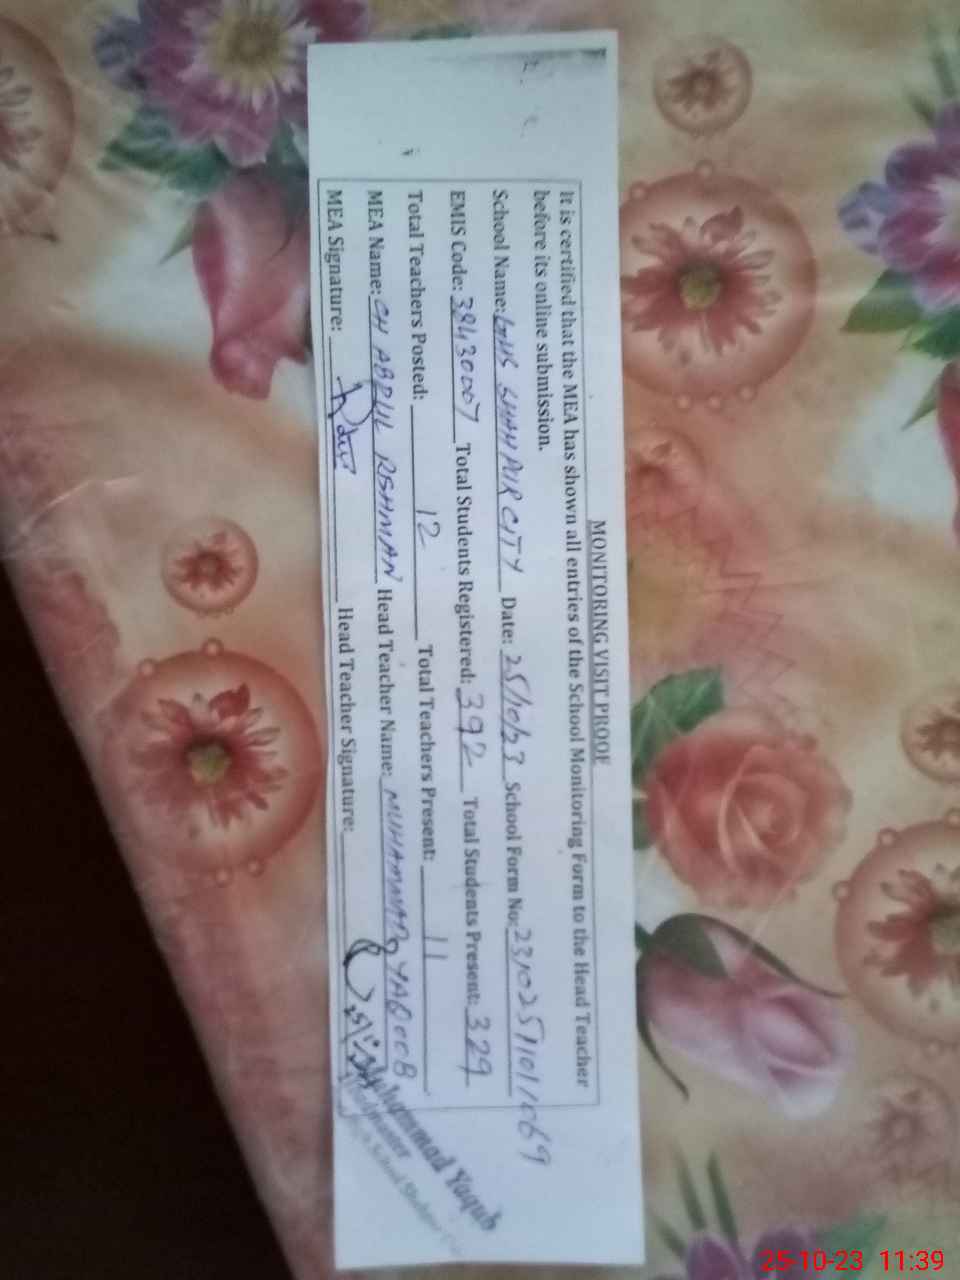 MONITORING VISIT PROOF
It is certified that the MEA has shown all entries of the School Monitoring Form to the Head Teacher
before its online submission.
School Name: GHS SHAHPUR CITY Date: 25/10/23 School Form No: 23102511011069
EMIS Code: 38430007 Total Students Registered: 392 Total Students Present: 329
Total Teachers Posted: 12 Total Teachers Present: 11
MEA Name: CH ABDUL REHMAN Head Teacher Name: MUHAMMAD YAQOOB
MEA Signature: Head Teacher Signature:
Muhammad Yaqub
Headmaster
High School Shahpur
25-10-23 11:39